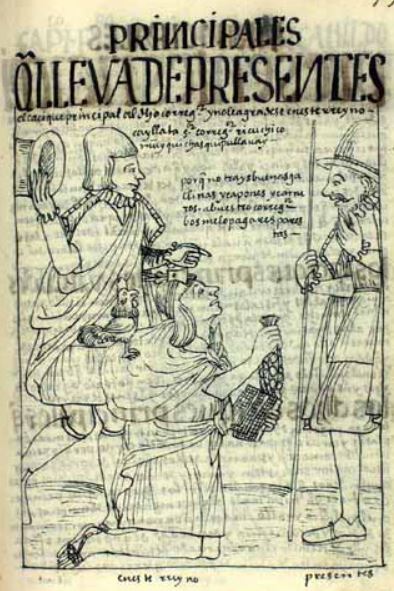 PRINCIPALES
Q̃LLEVADEPRESENTES
el cacique prencipal al dho correg.or y nole agradese enesterreyno -
cayllata s.or correg.or ricuchico
muy qui chasquipullauay
porq̃ no trays buenas ga
llinas y capones y carne
ros. a bues tro correg.or
bos me lo pagareys
tas -
enesterreyno
presentes